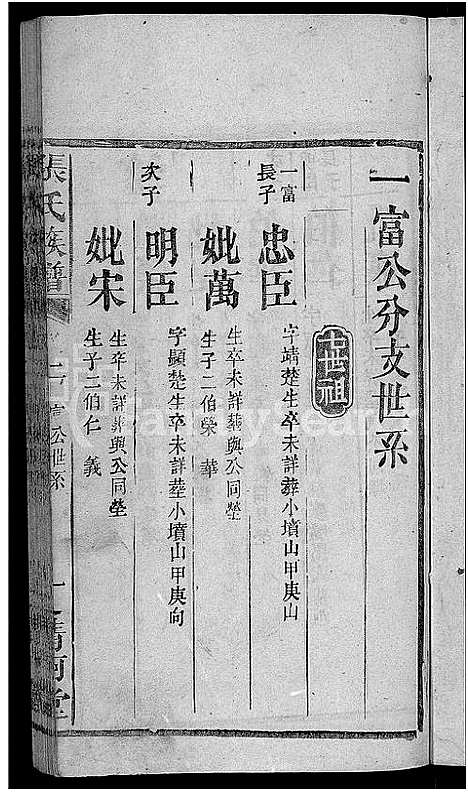 一富公分支世系
十世祖
一富長子
忠臣
字靖楚生卒未詳葬小墳山甲庚山
妣萬
生卒未詳葬與公同塋
生子二伯榮 華
次子
明臣
字顯楚生卒未詳塟小墳山甲庚向
妣宋
生卒未詳葬與公同塋
生子二伯仁 義
張氏族譜
富公世系
清河堂